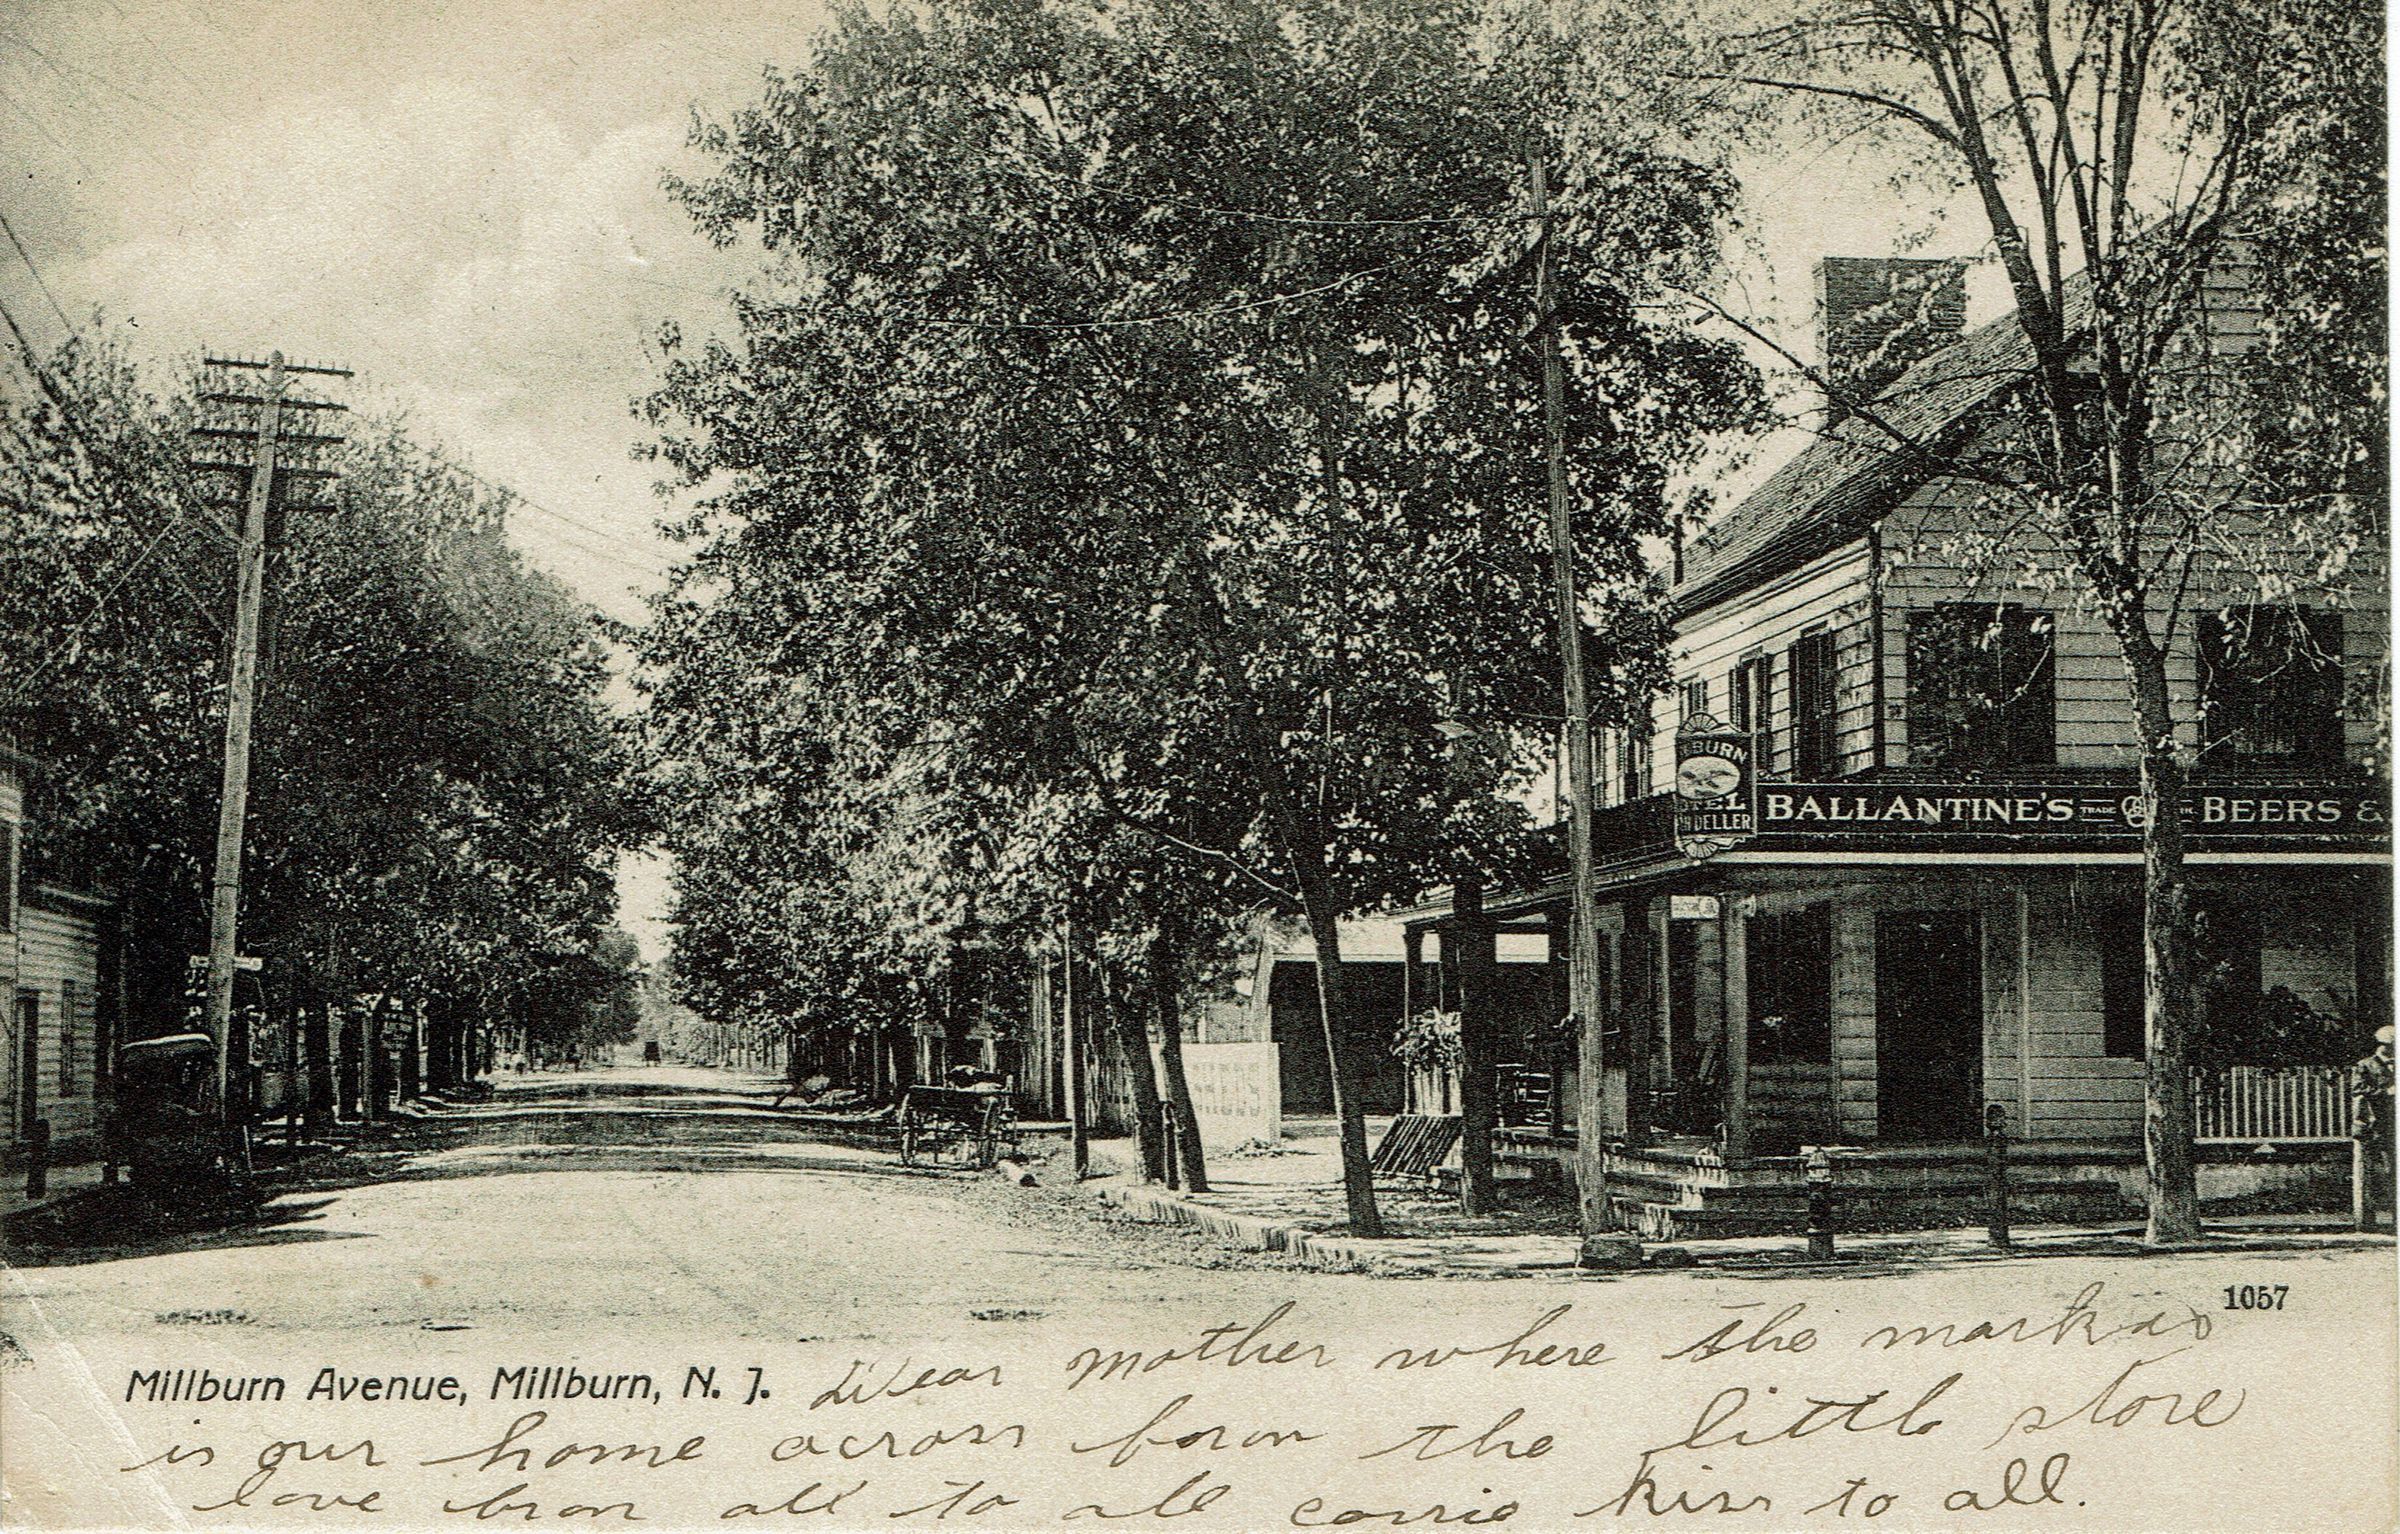 BURN
TEL
DELLER
BALLANTINE'S TRADE BEERS &
1057
Millburn Avenue, Millburn, N. J.
Dear mother where the mark is
is our home across from the little store
love from all to all Carrie kiss to all.